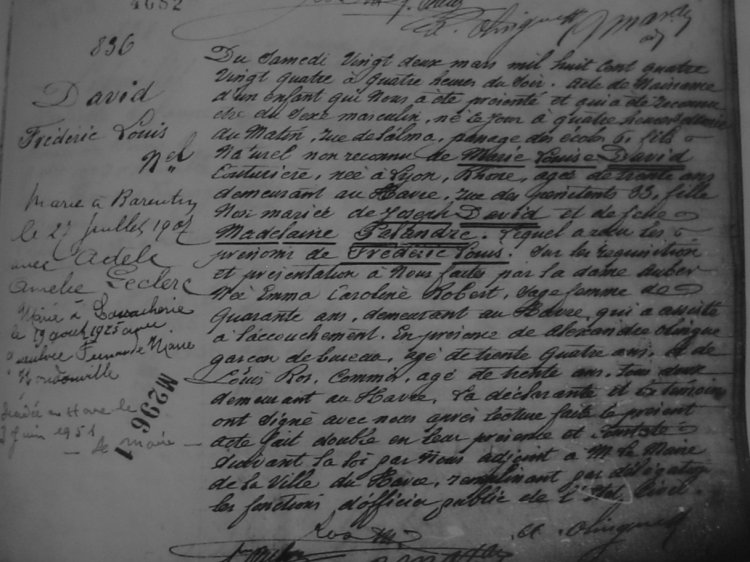 4682
836
David
Frédéric Louis
Nel
Marié à Barentin
le 27 Juillet 1907
avec Adèle
Amélie Leclerc
Marié à
le 19 août 1925 avec
Fernande Marie
décédé au Havre le
Juin 1951
le maire
M296
Du Samedi Vingt deux mars mil huit cent quatre
Vingt quatre à quatre heures du Soir. Acte de Naissance
d'un enfant qui Nous a été présenté et qui a été reconnu
être du Sexe masculin, né le jour à quatre heures
du Matin, rue de passage des écoles 6, fils
Naturel non reconnu de Marie Louise David
Couturière, née à Lyon, Rhône, agée de trente ans
demeurant au Havre, rue des pénitents 33, fille
Non mariée de Joseph David et de feue
Madelaine Felandre. Lequel a reçu les
prénoms de Frédéric Louis. Sur les réquisition
et présentation à Nous faites par la dame Auber
Née Emma Caroline Robert, Sage femme de
quarante ans, demeurant au Havre, qui a assisté
à l'accouchement. En présence de Alexandre
garçon de bureau, agé de trente quatre ans, et de
Louis Ros, Commis, agé de trente ans, tous deux
demeurant au Havre. La déclarante et les témoins
ont signé avec nous après lecture faite le présent
acte fait double en leur présence et
suivant la loi par Nous adjoint à M. le Maire
de la Ville du Havre, remplissant par délégation
les fonctions d'officier public de l'Etat Civil.